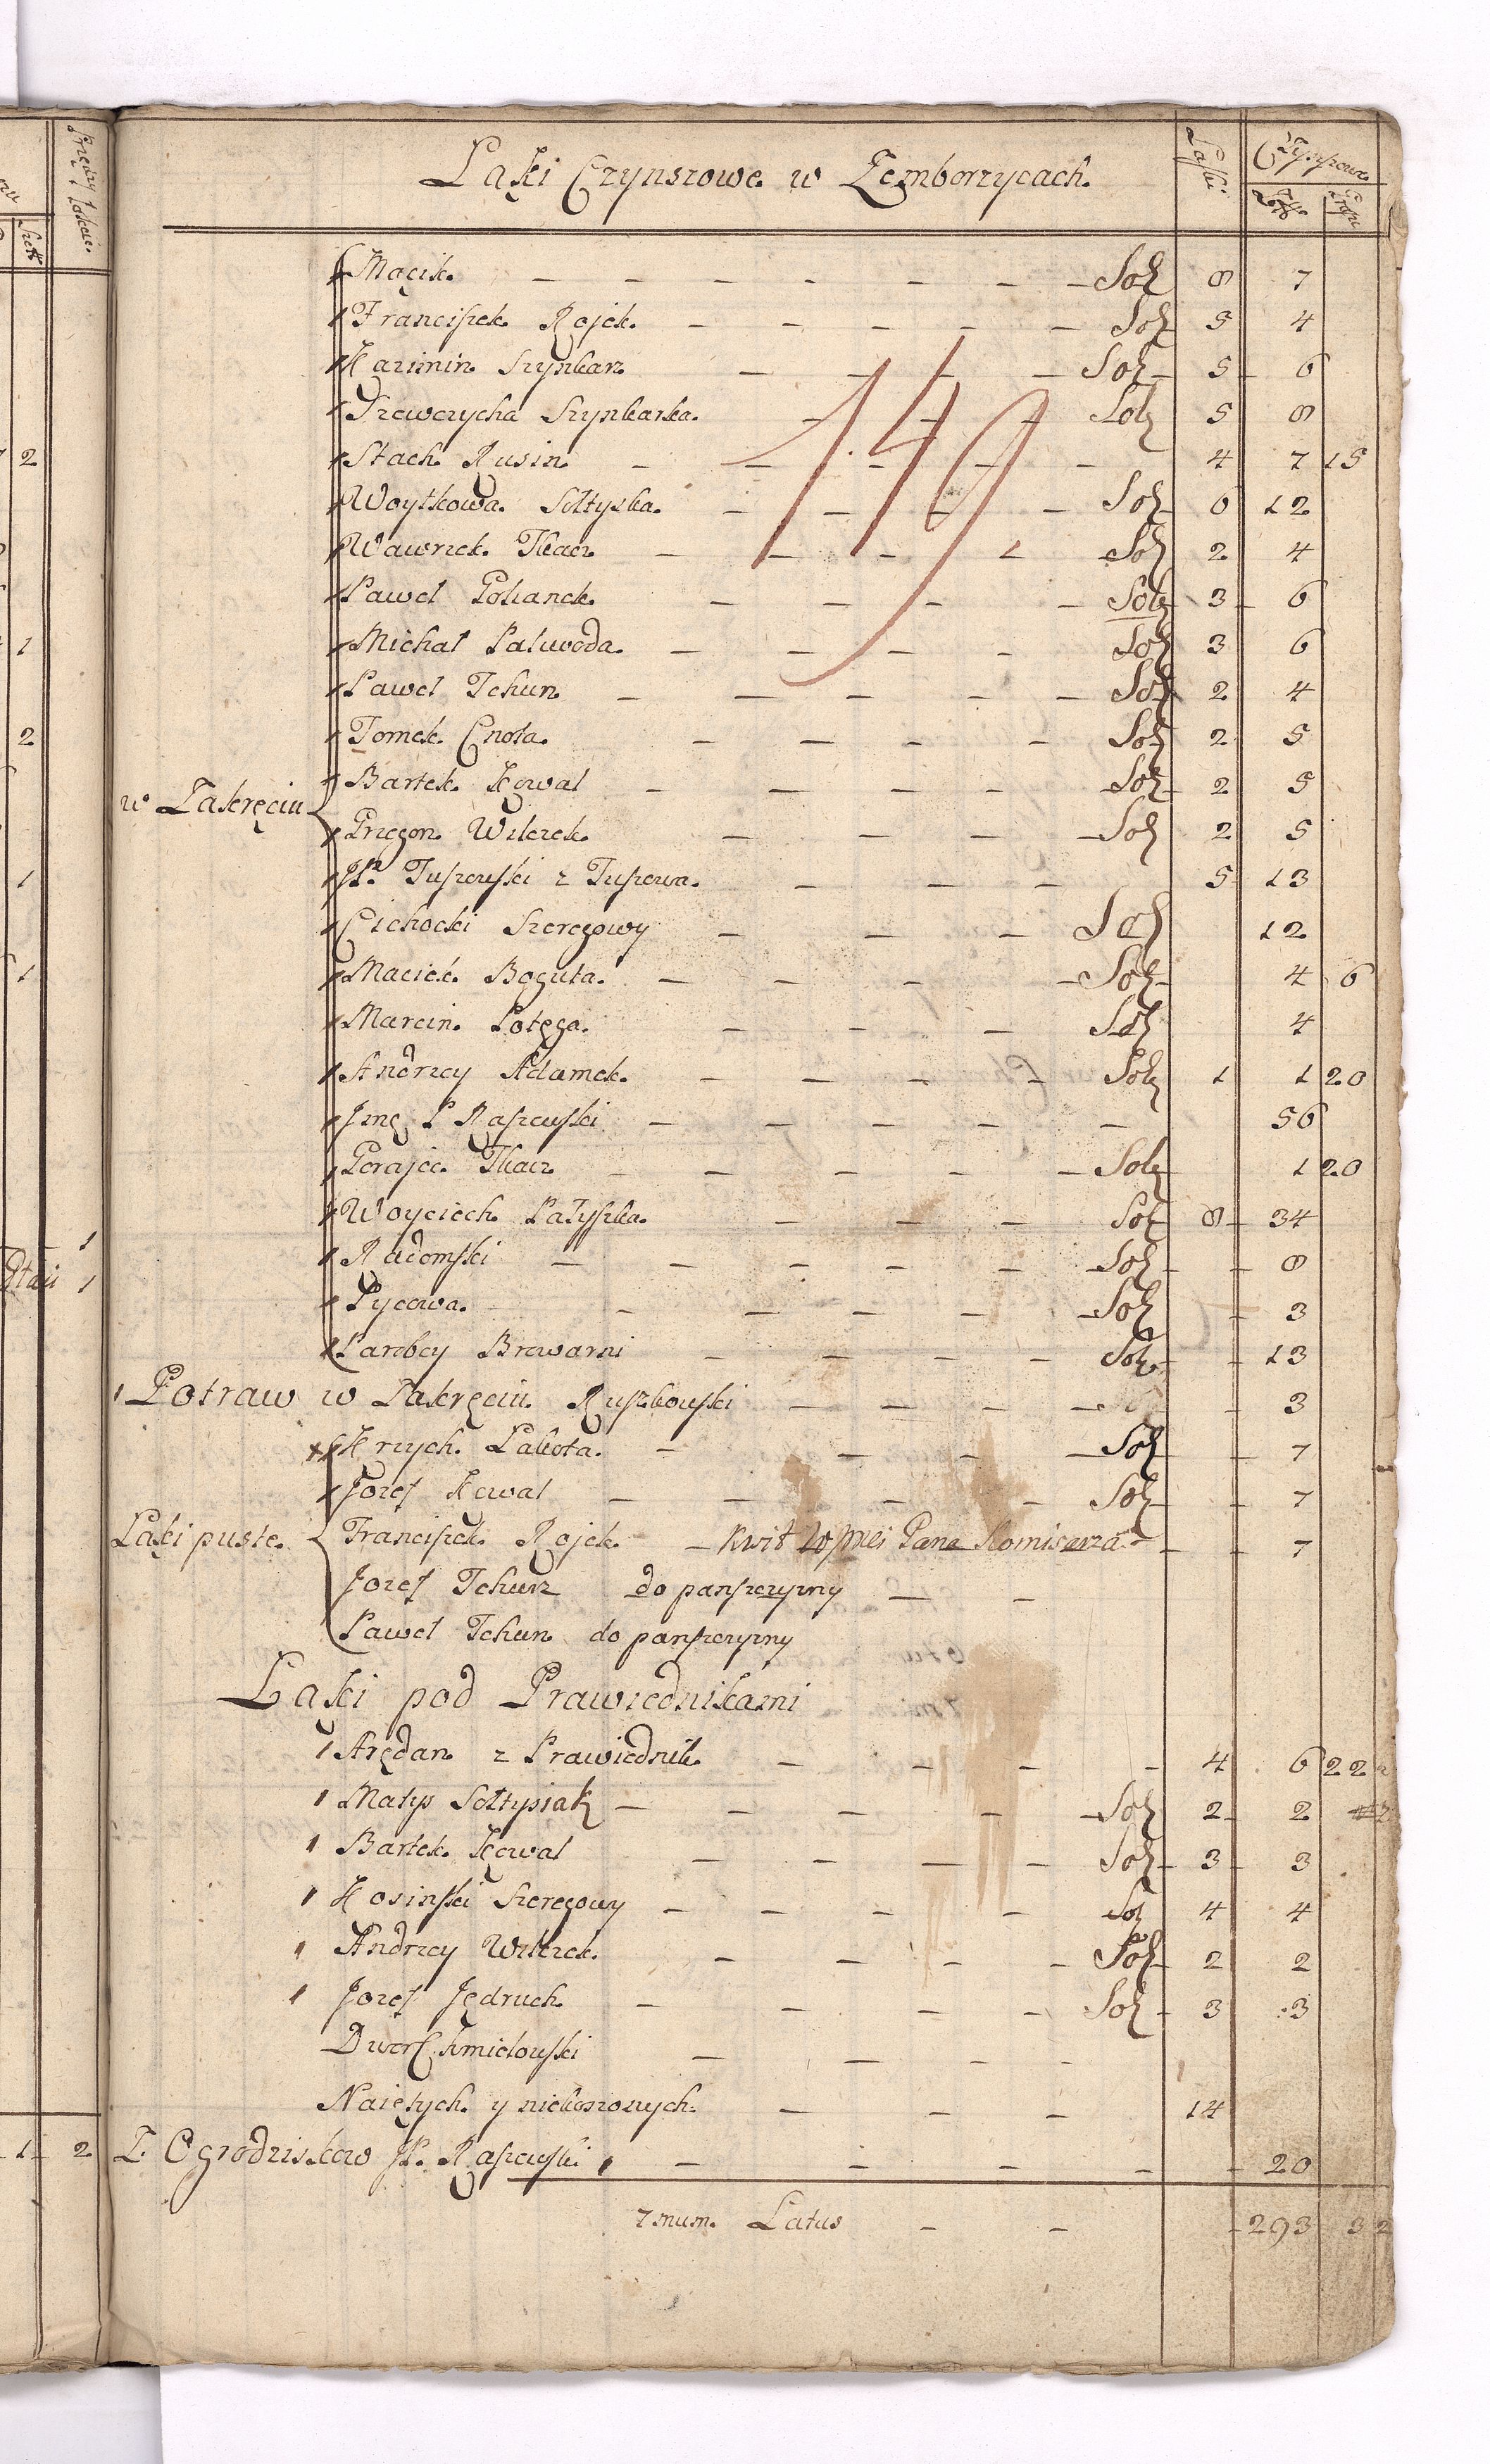 Łąki Czynszowe w Zemborzycach. Czynszowe
Zło Grosz
Macik. Sol 8 7
Franciszek Rojek. Sol 5 4
Kazimin Szynkarz Sol 5 6
Szewczycha Szynkarka. Sol 5 8
Stach Rusin 4 7 15
Woytkowa Sołtyska. Sol 6 12
Wawrzek Tkacz Sol 2 4
Paweł Polianek. Sol 3 6
Michał Paluwoda. Sol 3 6
Paweł Tchurz Sol 2 4
Tomek Cnota. Sol 2 5
w Zakręciu Bartek Kowal Sol 2 5
Grzegorz Wilczek. Sol 2 5
JP. Tuszowski z Tuszowa. 5 13
Cichocki Szeregowy Sol 12
Maciek Boguta. Sol 4 6
Marcin Potęga. Sol 4
Andrzey Adamek. Sol 1 1 20
Jmć P Raszewski 56
Tkacz Sol 1 20
Woyciech Pałyszka. Sol 8 34
Radomski Sol 8
Pycowa. Sol 3
Parobcy Browarni Sol 13
Potraw w Zakręciu Ruszkowski 3
Krzych Łakota. Sol 7
Jozef Kowal Sol 7
Łąki puste. Franciszek Rojek. Kwit Pana Komisarza 7
Jozef Tchurz do panszczyzny
Paweł Tchurz do panszczyzny
Łąki pod Prawiednikami
Arędarz z Prawiednik 4 6 22
Matys Sołtysiak Sol 2 2
Bartek Kowal Sol 3 3
Kosinski Szeregowy Sol 4 4
Andrzey Wilczek. Sol 2 2
Jozef Jędruch Sol 3 3
Dwor. Kmielowski
Naiętych y niekoszonych. 14
Z Ogrodziskow JP. Raszewski 20
Latus 293 32
149